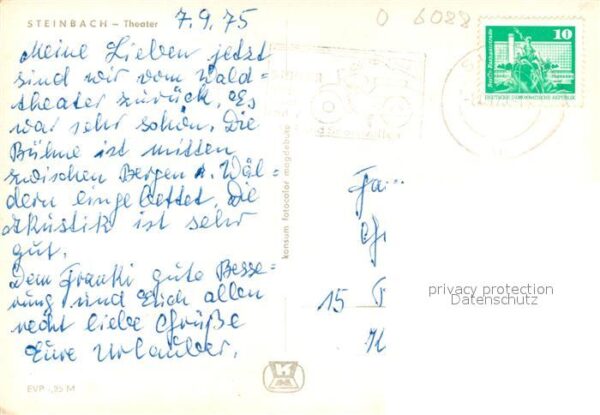 STEINBACH – Theater
7.9.75
0 6088
Meine Lieben jetzt
sind wir vom Wald=
theater zurück, es
war sehr schön. Die
Bühne ist mitten
zwischen Bergen u. Wäl-
dern eingebettet, die
Akustik ist sehr
gut.
Dem Franki gute Besse-
rung und Euch allen
recht liebe Grüße
Eure Urlauber.
EVP -,25 M
konsum fotocolor magdeburg
10
DEUTSCHE DEMOKRATISCHE REPUBLIK
Fa
15
privacy protection
Datenschutz